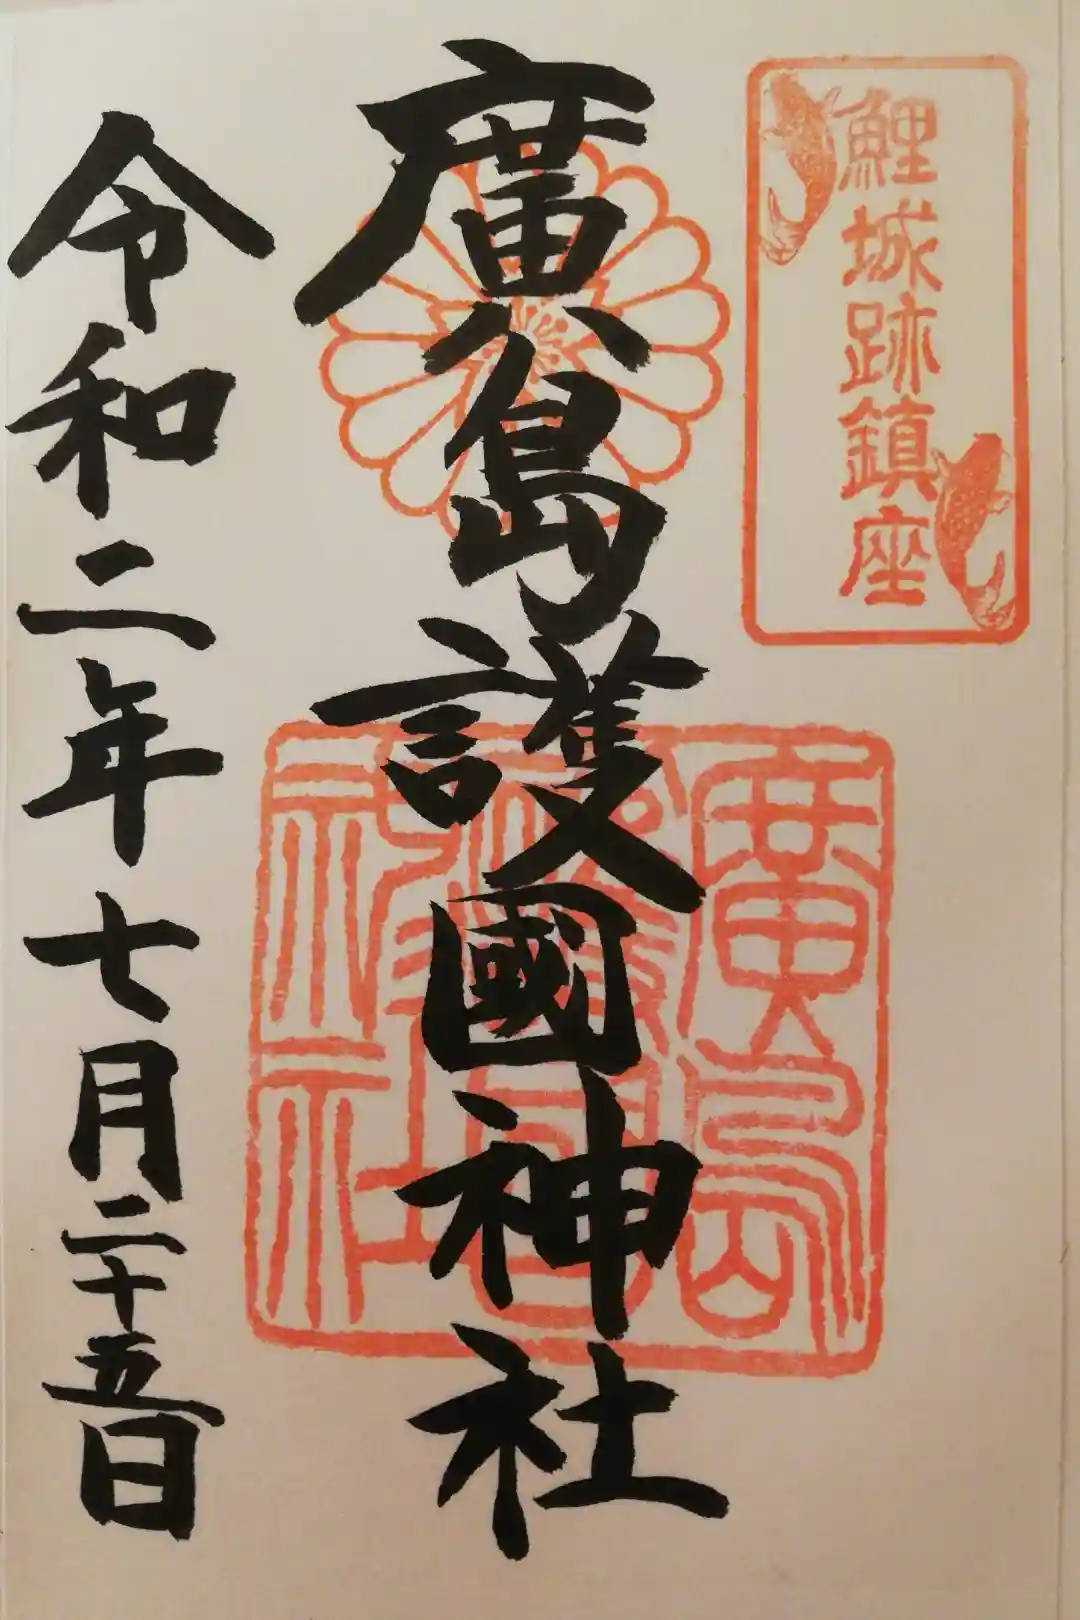 鯉城跡鎮座
廣島護國神社
廣島護國神社
令和二年七月二十五日